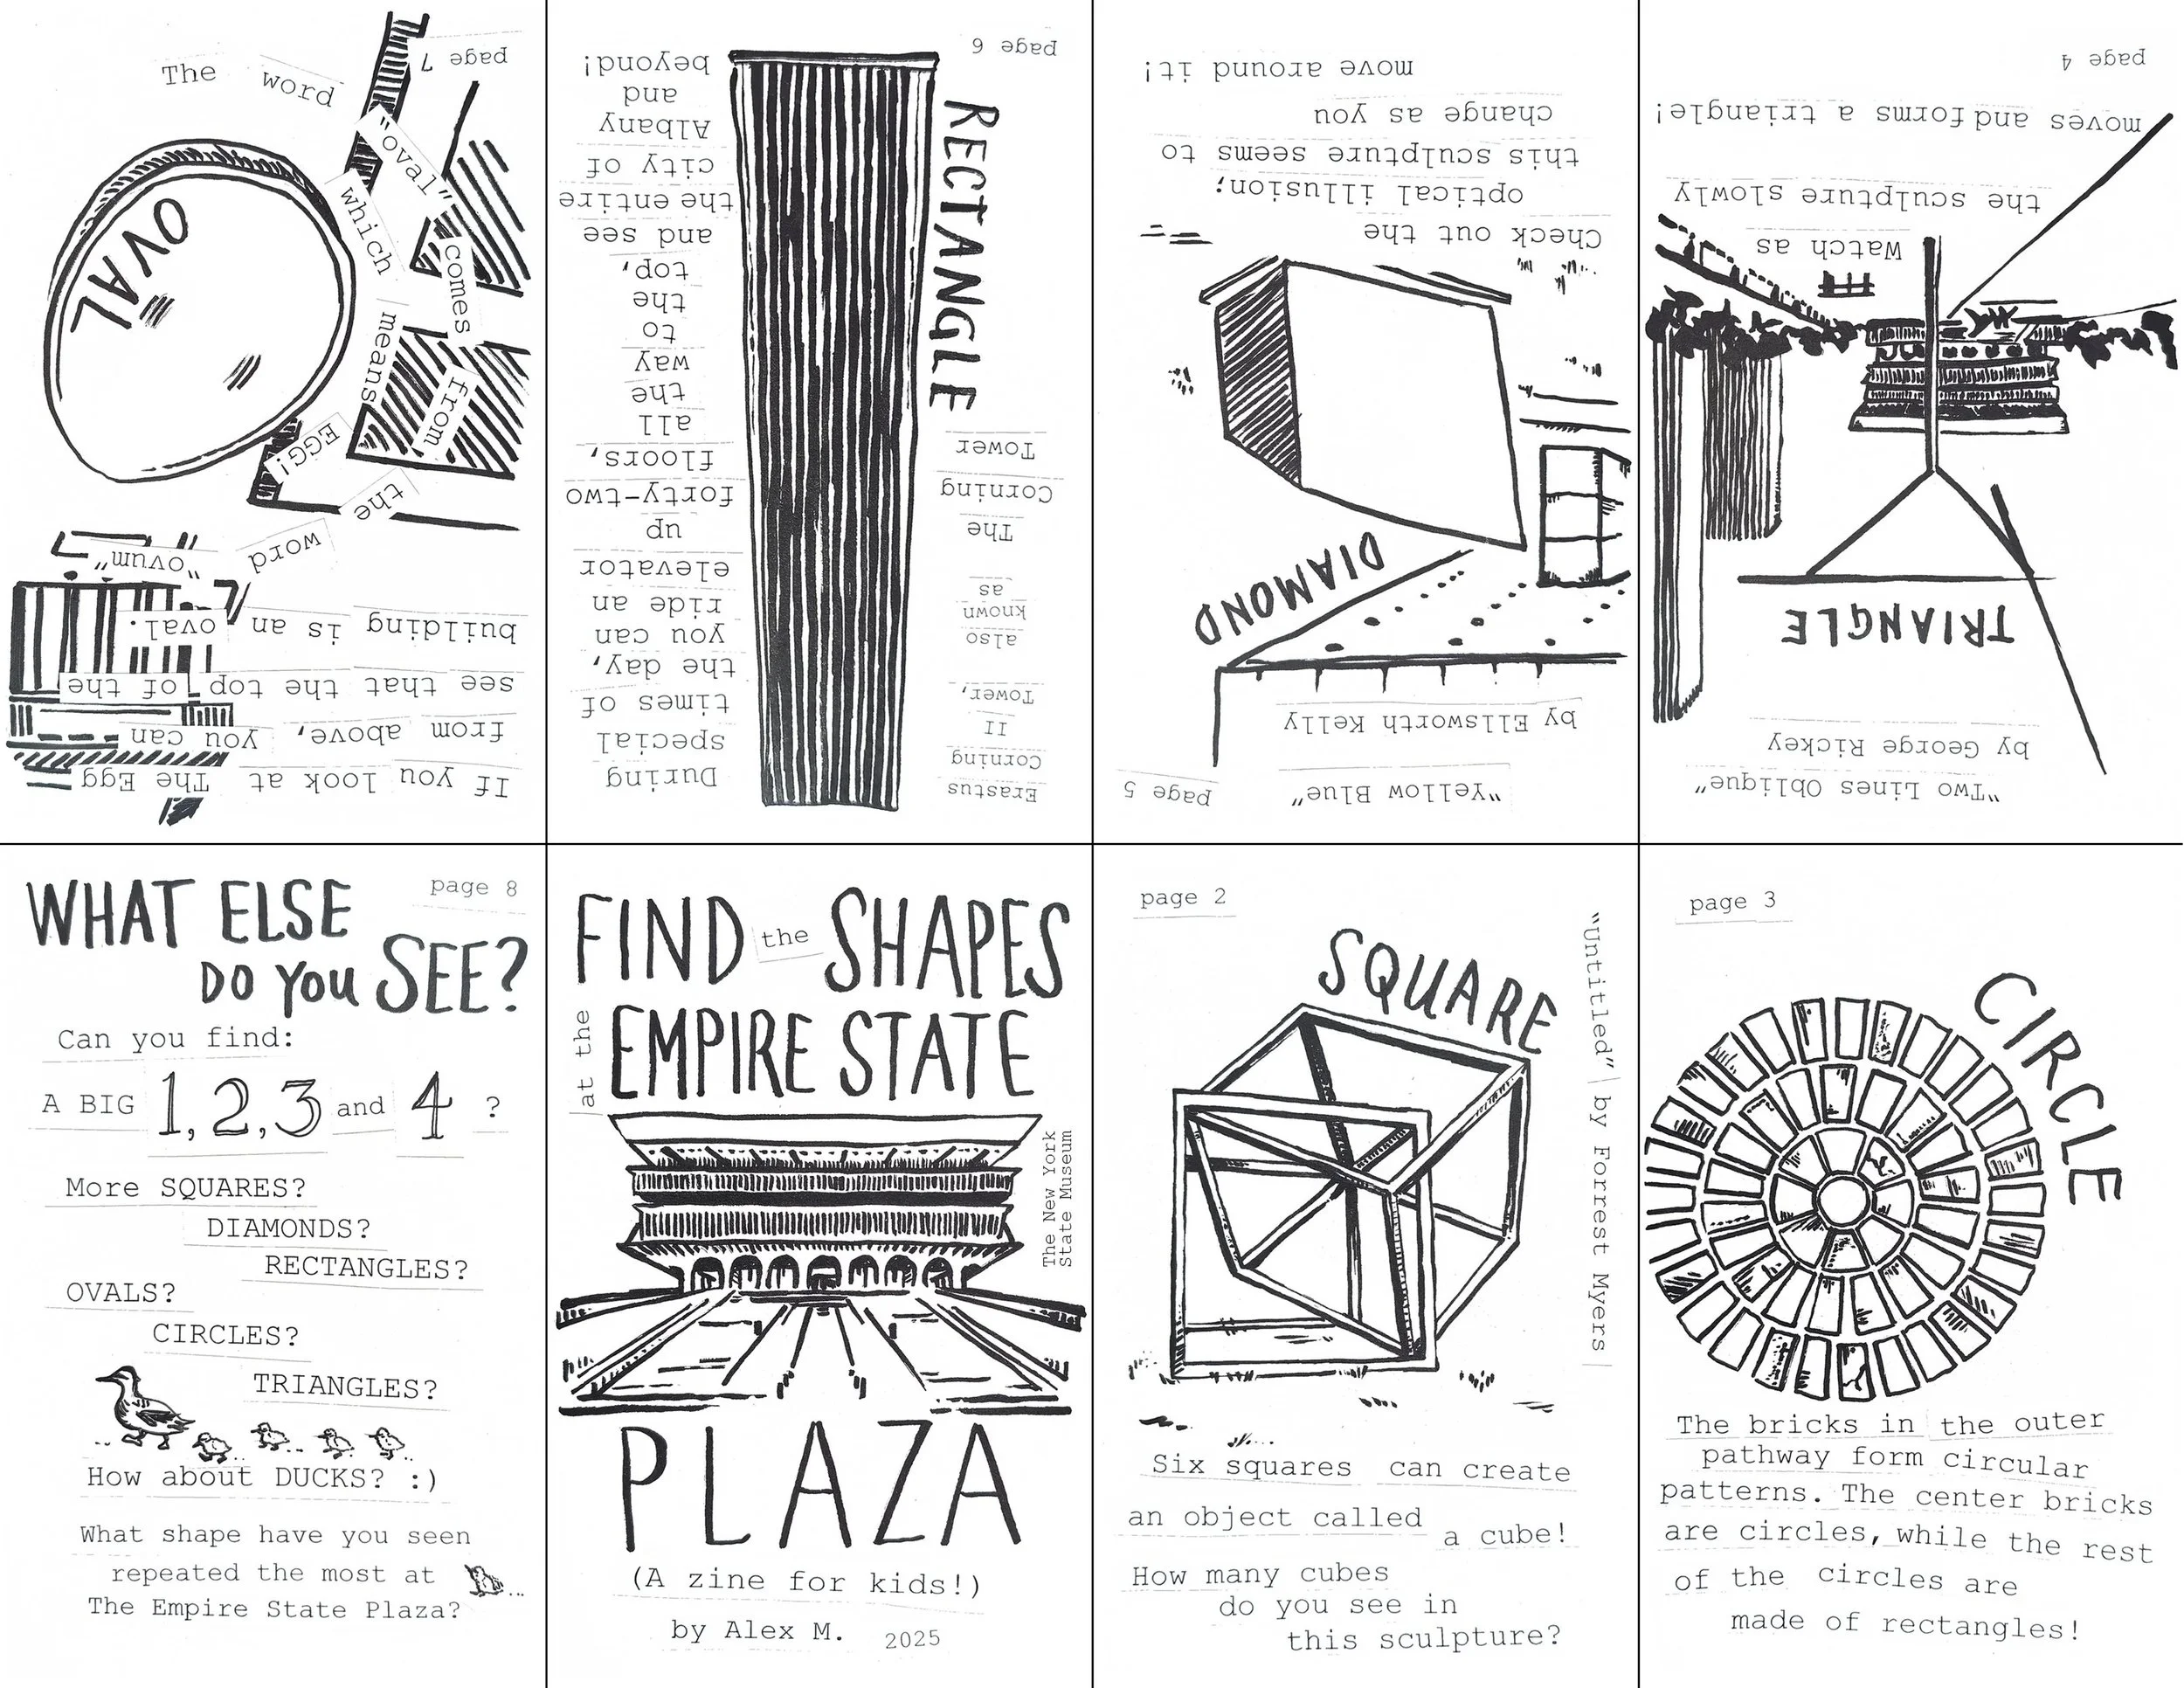 FIND the SHAPES
at the
EMPIRE STATE
The New York
State Museum
PLAZA
(A zine for kids!)
by Alex M. 2025
page 2
SQUARE
"Untitled" by Forrest Myers
Six squares can create
an object called
a cube!
How many cubes
do you see in
this sculpture?
page 3
CIRCLE
The bricks in the outer
pathway form circular
patterns. The center bricks
are circles, while the rest
of the circles are
made of rectangles!
page 4
"Two Lines Oblique"
by George Rickey
TRIANGLE
Watch as
the sculpture slowly
moves and forms a triangle!
page 5
"Yellow Blue"
by Ellsworth Kelly
DIAMOND
Check out the
optical illusion;
this sculpture seems to
change as you
move around it!
page 6
RECTANGLE
Erastus
Corning
II
Tower,
also
known
as
The
Corning
Tower
During
special
times of
the day,
you can
ride an
elevator
up
forty-two
floors,
all
the
way
to
the
top,
and see
the entire
city of
Albany
and
beyond!
page 7
If you look at The Egg
from above, you can
see that the top of the
building is an oval.
OVAL
The word
"oval"
comes
from
the
word
"ovum"
which
means
EGG!
page 8
WHAT ELSE
DO YOU SEE?
Can you find:
A BIG 1, 2, 3 and 4 ?
More SQUARES?
DIAMONDS?
RECTANGLES?
OVALS?
CIRCLES?
TRIANGLES?
How about DUCKS? :)
What shape have you seen
repeated the most at
The Empire State Plaza?